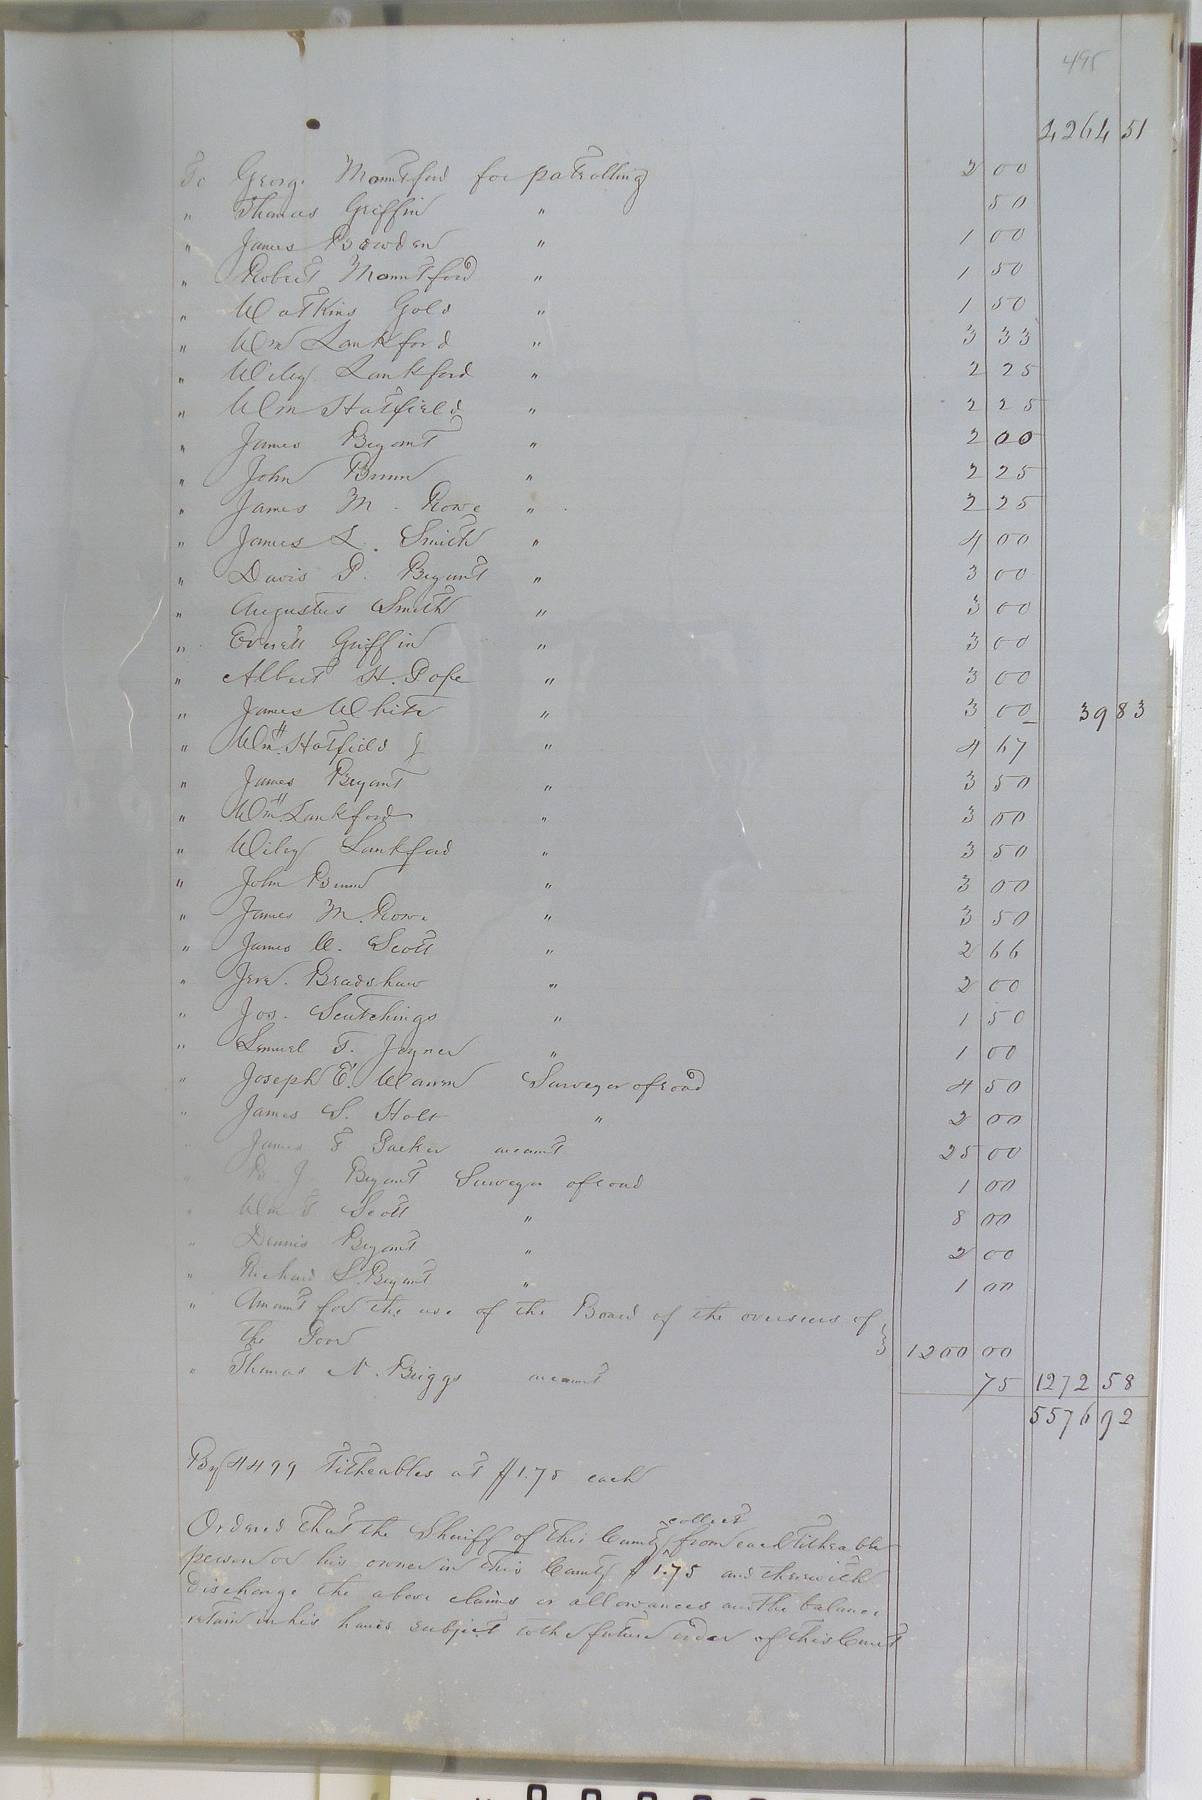 495
4264 51
To George Mountford for patrolling 2 00
" Thomas Griffin " 50
" James Bowden " 1 00
" Robert Mountford " 1 50
" Watkins Gold " 1 50
" Wm Lankford " 3 33
" Wiley Lankford " 2 25
" Wm Hatfield " 2 25
" James Bryant " 2 00
" John Bunn " 2 25
" James M. Rowe " 2 25
" James L. Smith " 4 00
" Davis P. Bryant " 3 00
" Augustus Smith " 3 00
" Everett Griffin " 3 00
" Albert H. Pope " 3 00
" James White " 3 00 39 83
" Wm H Hatfield J " 4 67
" James Bryant " 3 50
" Wm H Lankford " 3 00
" Wiley Lankford " 3 50
" John Bunn " 3 00
" James M. Rowe " 3 50
" James W. Scott " 2 66
" Jere. Bradshaw " 2 00
" Jos. Scutchings " 1 50
" Lemuel T. Joyner " 1 00
" Joseph E. Warren Surveyor of road 4 50
" James S. Holt " 2 00
" James F Parker account 25 00
" B. J Bryant Surveyor of road 1 00
" Wm F Scott " 8 00
" Dennis Bryant " 2 00
" Richard S. Bryant " 1 00
" Amount for the use of the Board of the overseers of
the Poor 1200 00
" Thomas N. Briggs account 75 1272 58
5576 92
By 4499 Titheables at $1.75 each
Ordered that the Sheriff of this County collect from each titheable
person or his owner in this County $1.75 and therewith
discharge the above claims or allowances and the balance
retain in his hands subject to the future order of this Court